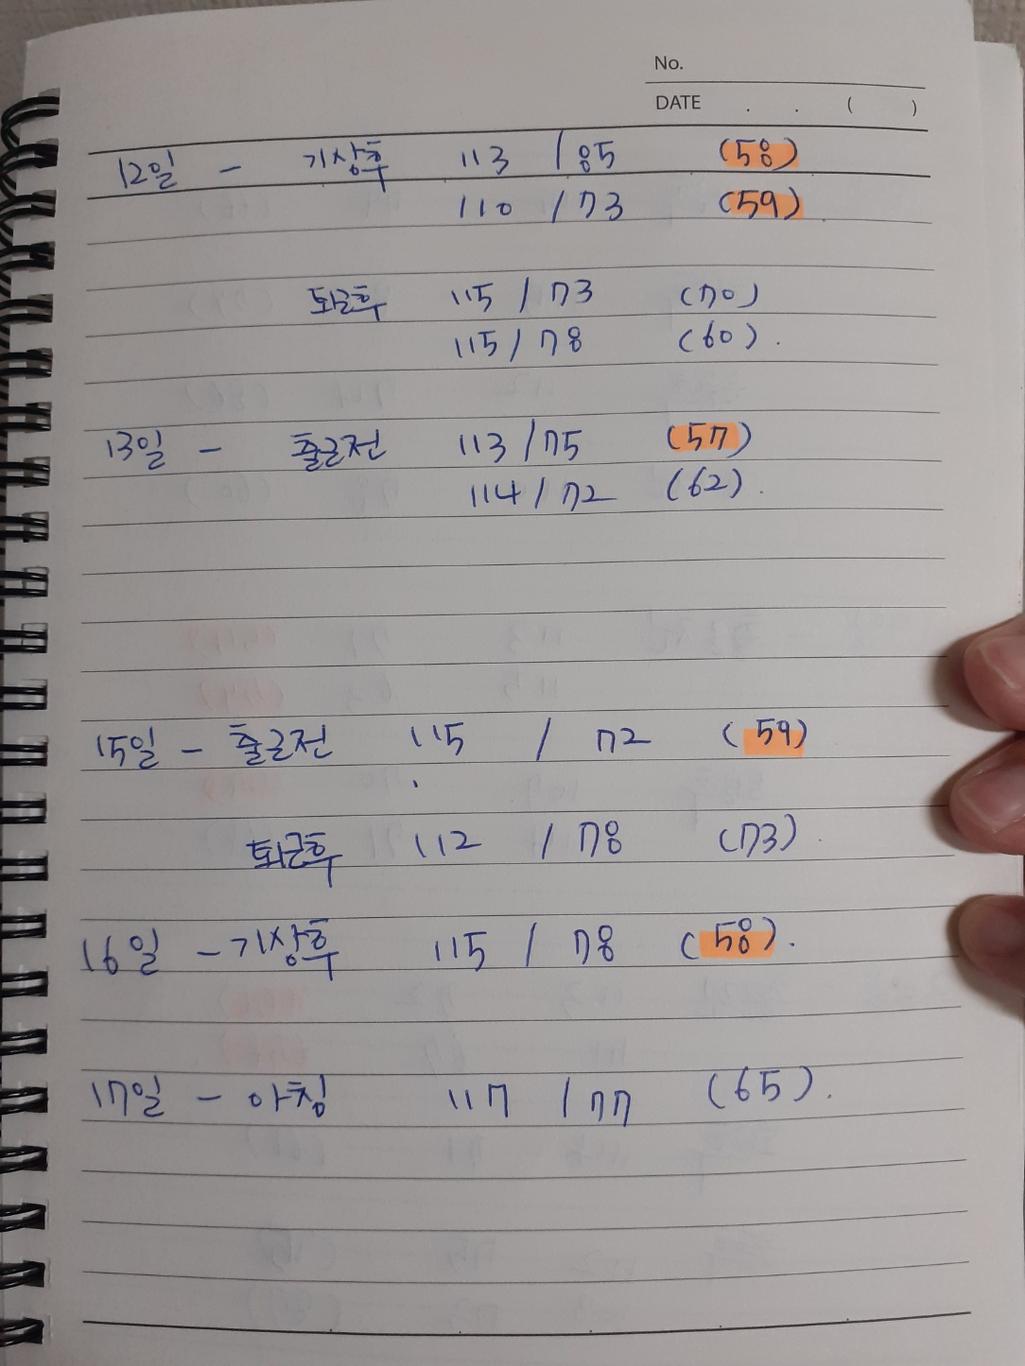 No.
DATE . . ( )
12일 - 기상후 113 / 85 (58)
110 / 73 (59)
퇴근후 115 / 73 (70)
115 / 78 (60).
13일 - 출근전 113 / 75 (57)
114 / 72 (62).
15일 - 출근전 115 / 72 (59)
퇴근후 112 / 78 (73).
16일 - 기상후 115 / 78 (58).
17일 - 아침 117 / 77 (65).